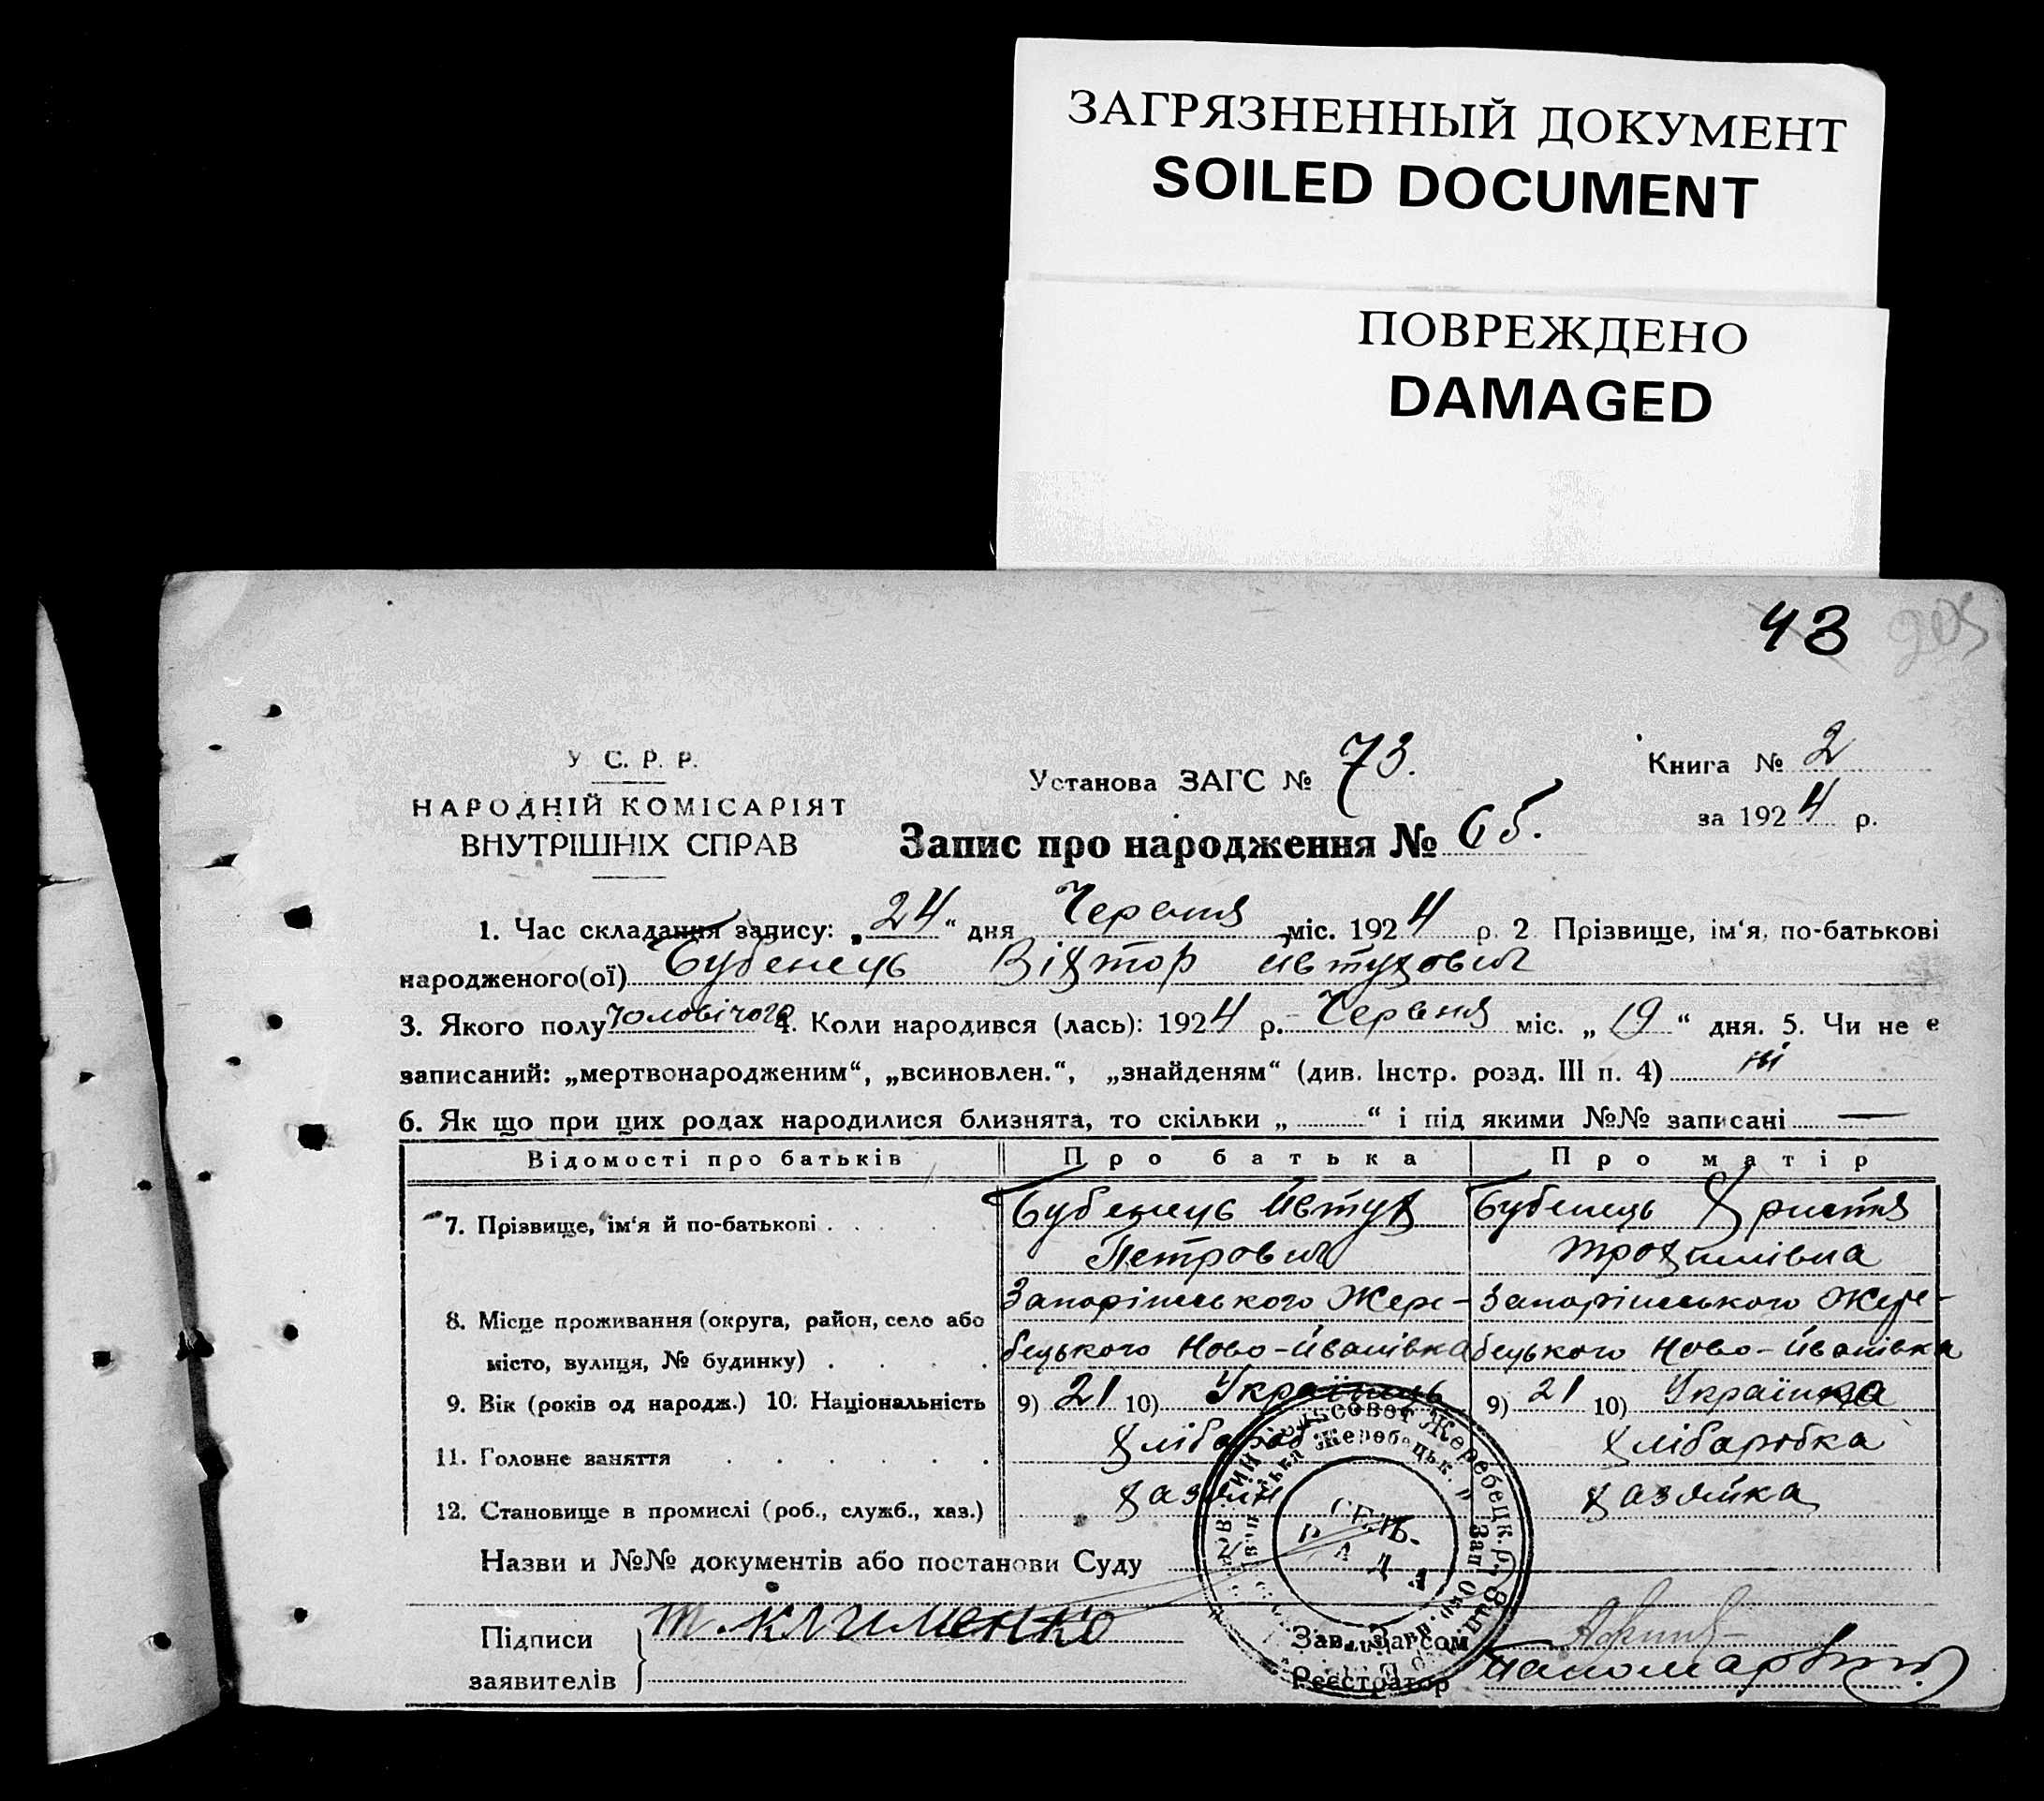 ЗАГРЯЗНЕННЫЙ ДОКУМЕНТ
SOILED DOCUMENT
ПОВРЕЖДЕНО
DAMAGED
43 205
У С. Р. Р.
НАРОДНІЙ КОМІСАРІЯТ
ВНУТРІШНІХ СПРАВ
Установа ЗАГС № 73.
Книга № 2
за 1924 р.
Запис про народження № 65.
1. Час складання запису: „24“ дня Червня міс. 1924 р. 2 Прізвище, ім‘я, по-батькові
народженого(ої) Бубенець Віктор Івтухович
3. Якого полу чоловічого 4. Коли народився (лась): 1924 р. Червня міс. „19“ дня. 5. Чи не е
записаний: „мертвонародженим“, „всиновлен.“, „знайденям“ (див. Інстр. розд. III п. 4) ні
6. Як що при цих родах народилися близнята, то скільки „ “ і під якими №№ записані —
Відомості про батьків Про батька Про матір
7. Прізвище, ім‘я й по-батькові Бубенець Івтух Бубенець Христя
Петрович Трохимівна
Запоріжського Жере- Запоріжського Жере-
8. Місце проживання (округа, район, село або
бецького Ново-Іванівка бецького Ново-Іванівка
місто, вулиця, № будинку)
9. Вік (років од народж.) 10. Національність 9) 21 10) Українець 9) 21 10) Українка
11. Головне заняття хлібароб хлібаробка
12. Становище в промислі (роб., служб., хаз.) хазяїн хазяйка
Назви и №№ документів або постанови Суду
СЕЛЬ-
РАДА
Підписи
заявителів
Т. Клименко
Зав. Загсом
Реєстратор